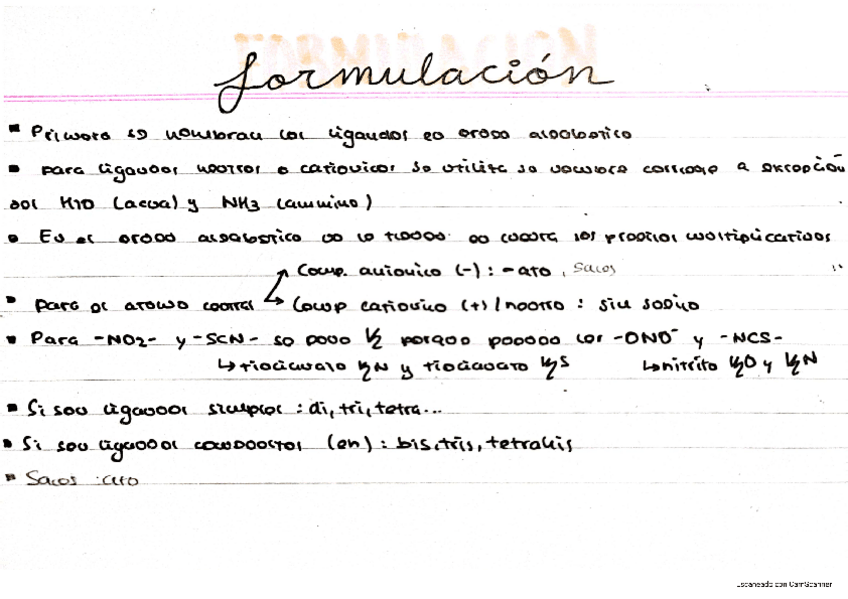 formulación
▪ Primero se nombran los ligandos en orden alfabético
• para ligandos neutros o catiónicos se utiliza su nombre corriente a excepción
del H2O (acua) y NH3 (ammino)
• En el orden alfabético no se tienen en cuenta los prefijos multiplicativos
Comp. aniónico (-) : -ato, Sales
▪ Para el átomo central ↳ Comp catiónico (+) / neutro : sin sufijo
▪ Para -NO2- y -SCN- se pone κ porque pueden ser -ONO⁻ y -NCS-
↳ tiocianato κN y tiocianato κS ↳ nitrito κO y κN
▪ Si son ligandos simples : di, tri, tetra...
▪ Si son ligandos complejos (en) : bis, tris, tetrakis
▪ Sales : ato
Escaneado con CamScanner